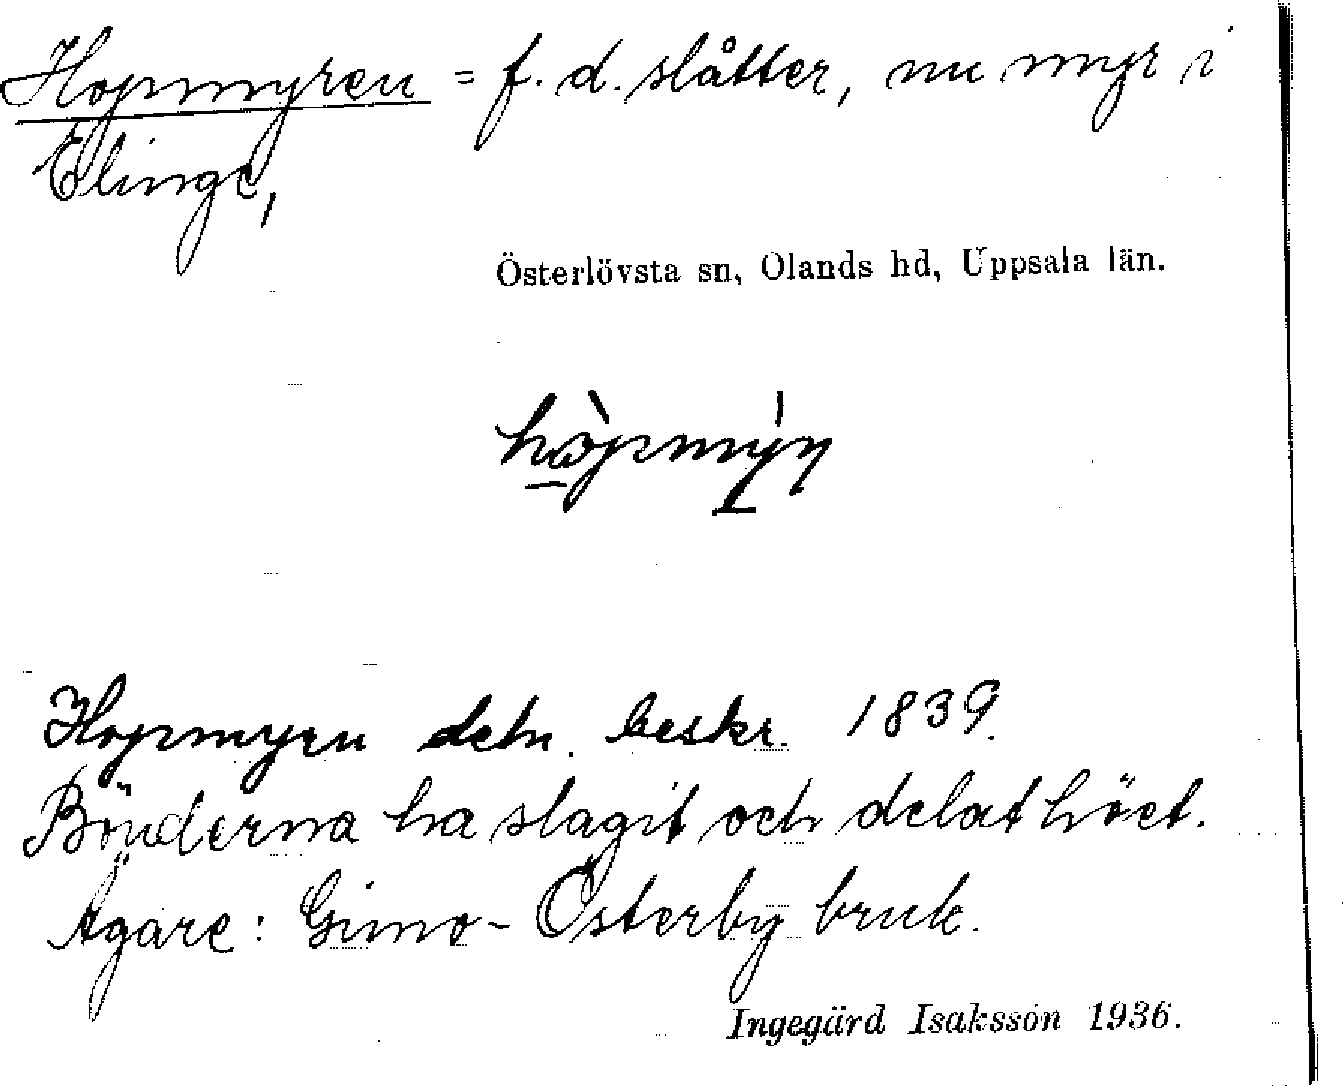 Hopmyren = f. d. slåtter, nu myr i
Elinge,
Österlövsta sn, Olands hd, Uppsala län.
Hopmyren deln. beskr. 1839.
Bönderna ha slagit och delat höet.
Ägare: Gimo-Österby bruk.
Ingegärd Isaksson 1936.